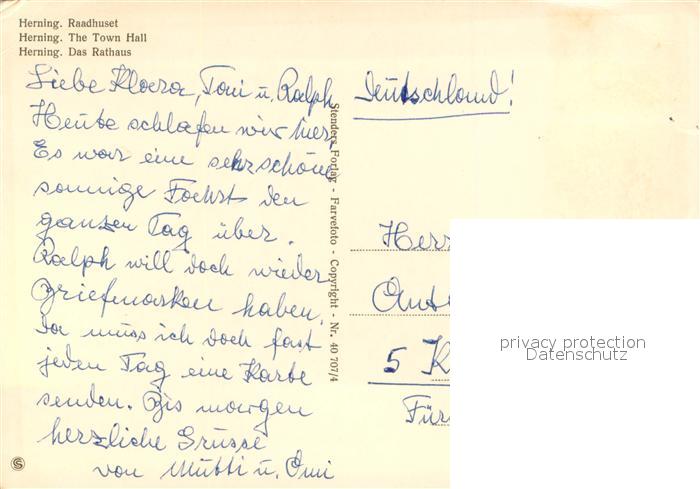 Herning. Raadhuset
Herning. The Town Hall
Herning. Das Rathaus
Liebe Klara, Toni u. Ralph
Heute schlafen wir hier.
Es war eine sehr schöne
sonnige Fahrt den
ganzen Tag über.
Ralph will doch wieder
Briefmarken haben.
Da muss ich doch fast
jeden Tag eine Karte
senden. Bis morgen
herzliche Grüsse
von Mutti u. Omi
Stenders Forlag - Farvefoto - Copyright - Nr. 40 707/4
Deutschland!
Herr
5 K
Für
privacy protection
Datenschutz